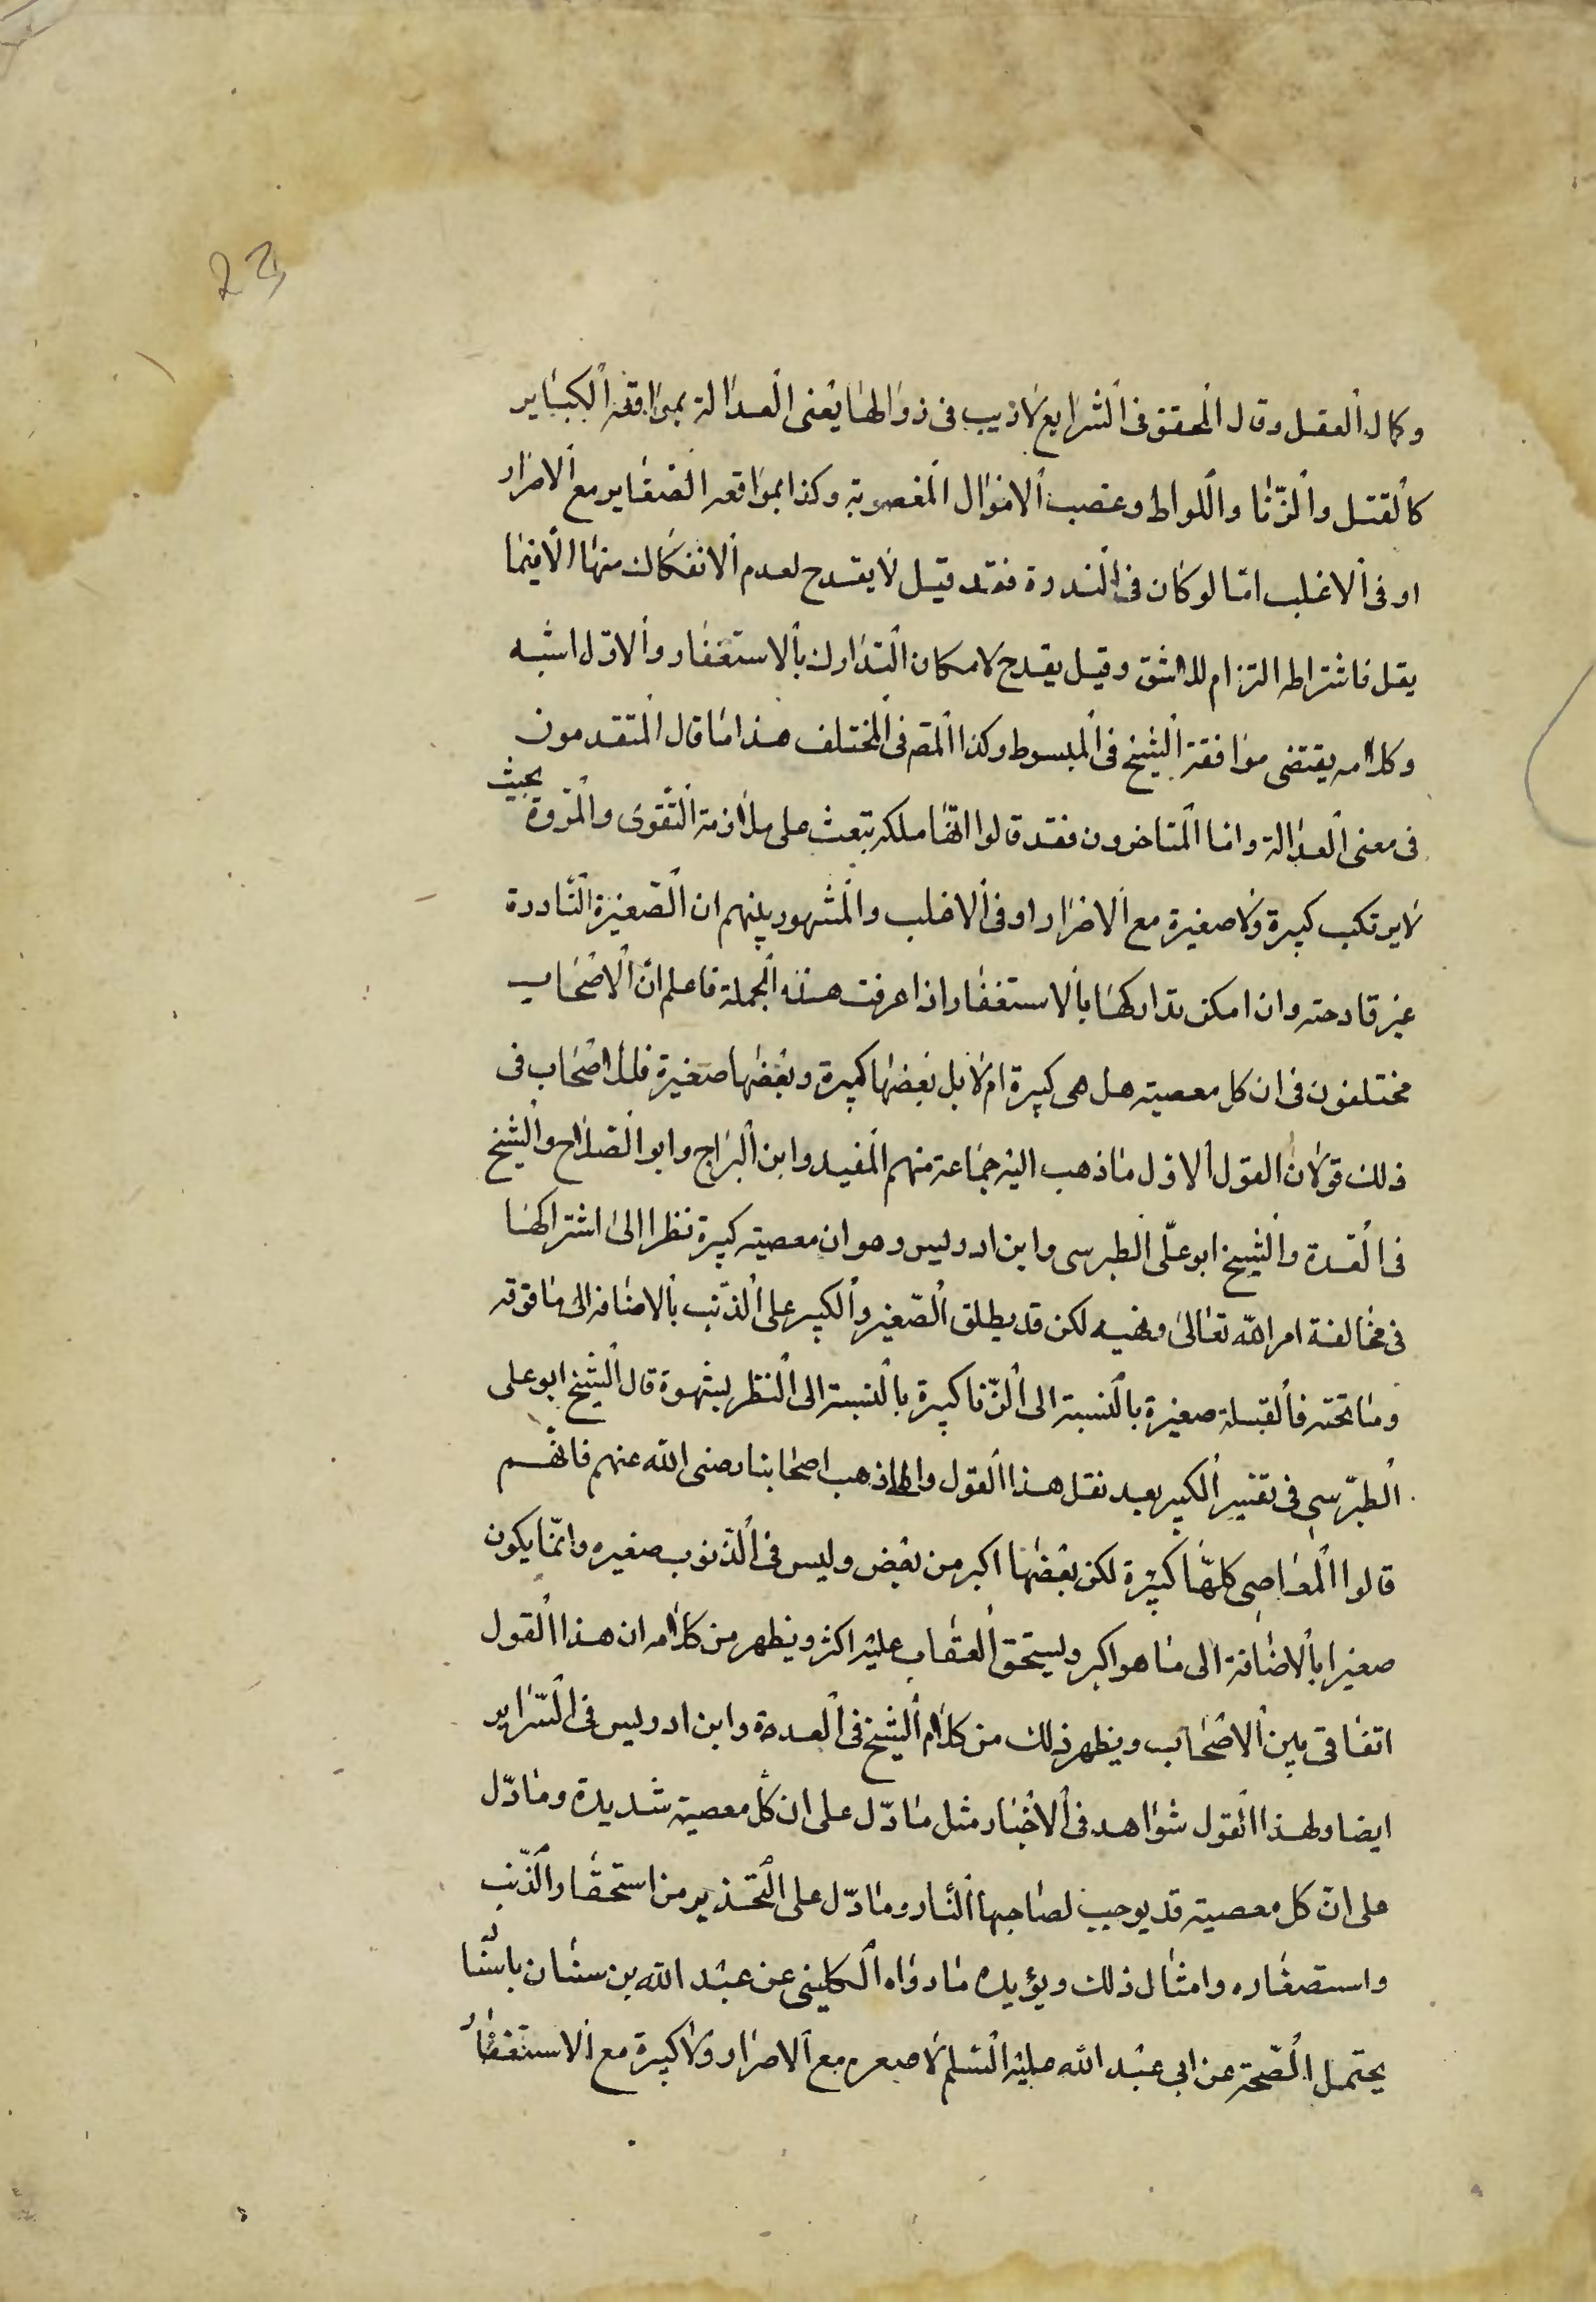 23
وكمال العقل وقال المحقق فى الشرايع لا ريب فى زوالها يعنى العدالة بمواقعة الكباير
كالقتل والزّنا واللواط وغصب الاموال المغصوبة وكذا بمواقعه الصّغاير مع الاصرار
او فى الاغلب امّا لو كان فى الندرة فقد قيل لا يقدح لعدم الانفكاك منها الّا فيما
يقل فاشتراطه التزام للاشق وقيل يقدح لامكان التّدارك بالاستغفار والاوّل اشبه
وكلامه يقتضى موافقة الشيخ فى المبسوط وكذا المصه فى المختلف هذا ما قال المتقدمون
فى معنى العدالة واما المتاخرون فقد قالوا انّها ملكه تبعث على ملازمة التّقوى والمروة بحيث
لا يرتكب كبيرة ولا صغيرة مع الاصرار او فى الاغلب والمشهور بينهم ان الصّغيرة النّادرة
غير قادحته وان امكن تداركها بالاستغفار اذا عرفت هذه الجملة فاعلم انّ الاصحاب
مختلفون فى ان كل معصيته هل هى كبيرة ام لا بل بعضها كبيرة وبعضها صغيرة فللاصحاب فى
ذلك قولان القول الاوّل ما ذهب اليه جماعة منهم المفيد وابن البراج وابو الصّلاح والشيخ
فى العدة والشيخ ابو علّى الطبرسى وابن ادريس وهو ان معصيته كبيرة نظرا الى اشتراكها
فى مخالفة امر الله تعالى ونهيه لكن قد يطلق الصّغير والكبير على الذّنب بالاضافه الى ما فوقه
وما تحته فالقبلة صغيرة بالنسبة الى الزّنا كبيرة بالنسبة الى النظر بشهوة قال الشيخ ابو على
الطبّرسى فى تفسير الكبير بعد نقل هذا القول والى هذا ذهب اصحابنا رضى الله عنهم فانّهم
قالوا المعاصى كلهّا كبيرة لكن بعضها اكبر من بعض وليس فى الذّنوب صغيره وانمّا يكون
صغيرا بالاضافة الى ما هو اكبر وليستحق العقاب عليه اكثر ويظهر من كلامه ان هذا القول
اتفاقى بين الاصحاب ويظهر ذلك من كلام الشيخ فى العدة وابن ادريس فى السّراير
ايضا ولهذا القول شواهد فى الاخبار مثل ما دّل على ان كل معصية شديدة وما دّل
على انّ كل معصيته قد يوجب لصاحبها النّار وما دّل على التّحذير من استحقار الذّنب
واستصغاره وامثال ذلك ويؤيده ما رواه الكلينى عن عبد الله بن سنان باسنا
يحتمل الصّحة عن ابى عبد الله عليه السّلم لا صغره مع الاصرار ولا كبيرة مع الاستغفار